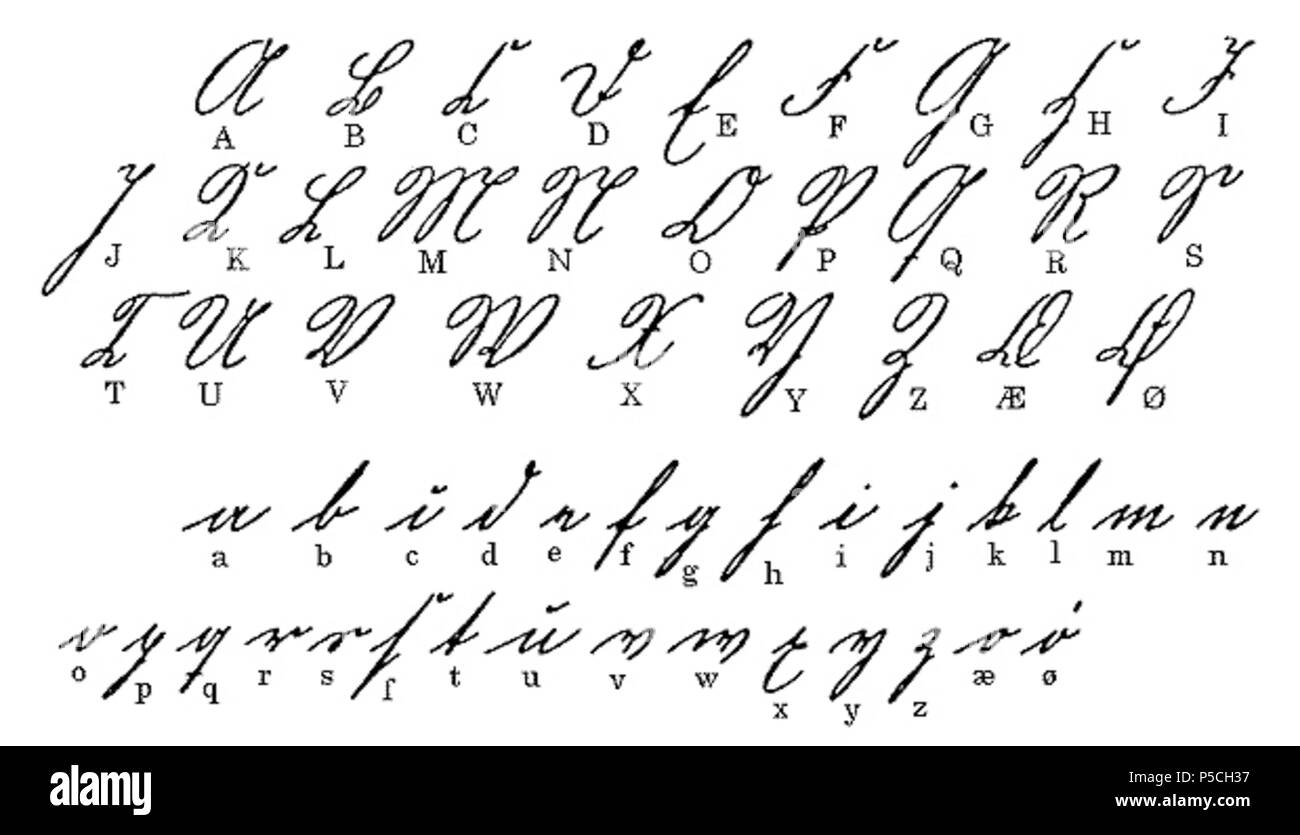 A B C D E F G H I
J K L M N O P Q R S
T U V W X Y Z Æ Ø
a b c d e f g h i j k l m n
o p q r s ſ t u v w x y z æ ø
alamy
Image ID: P5CH37
www.alamy.com